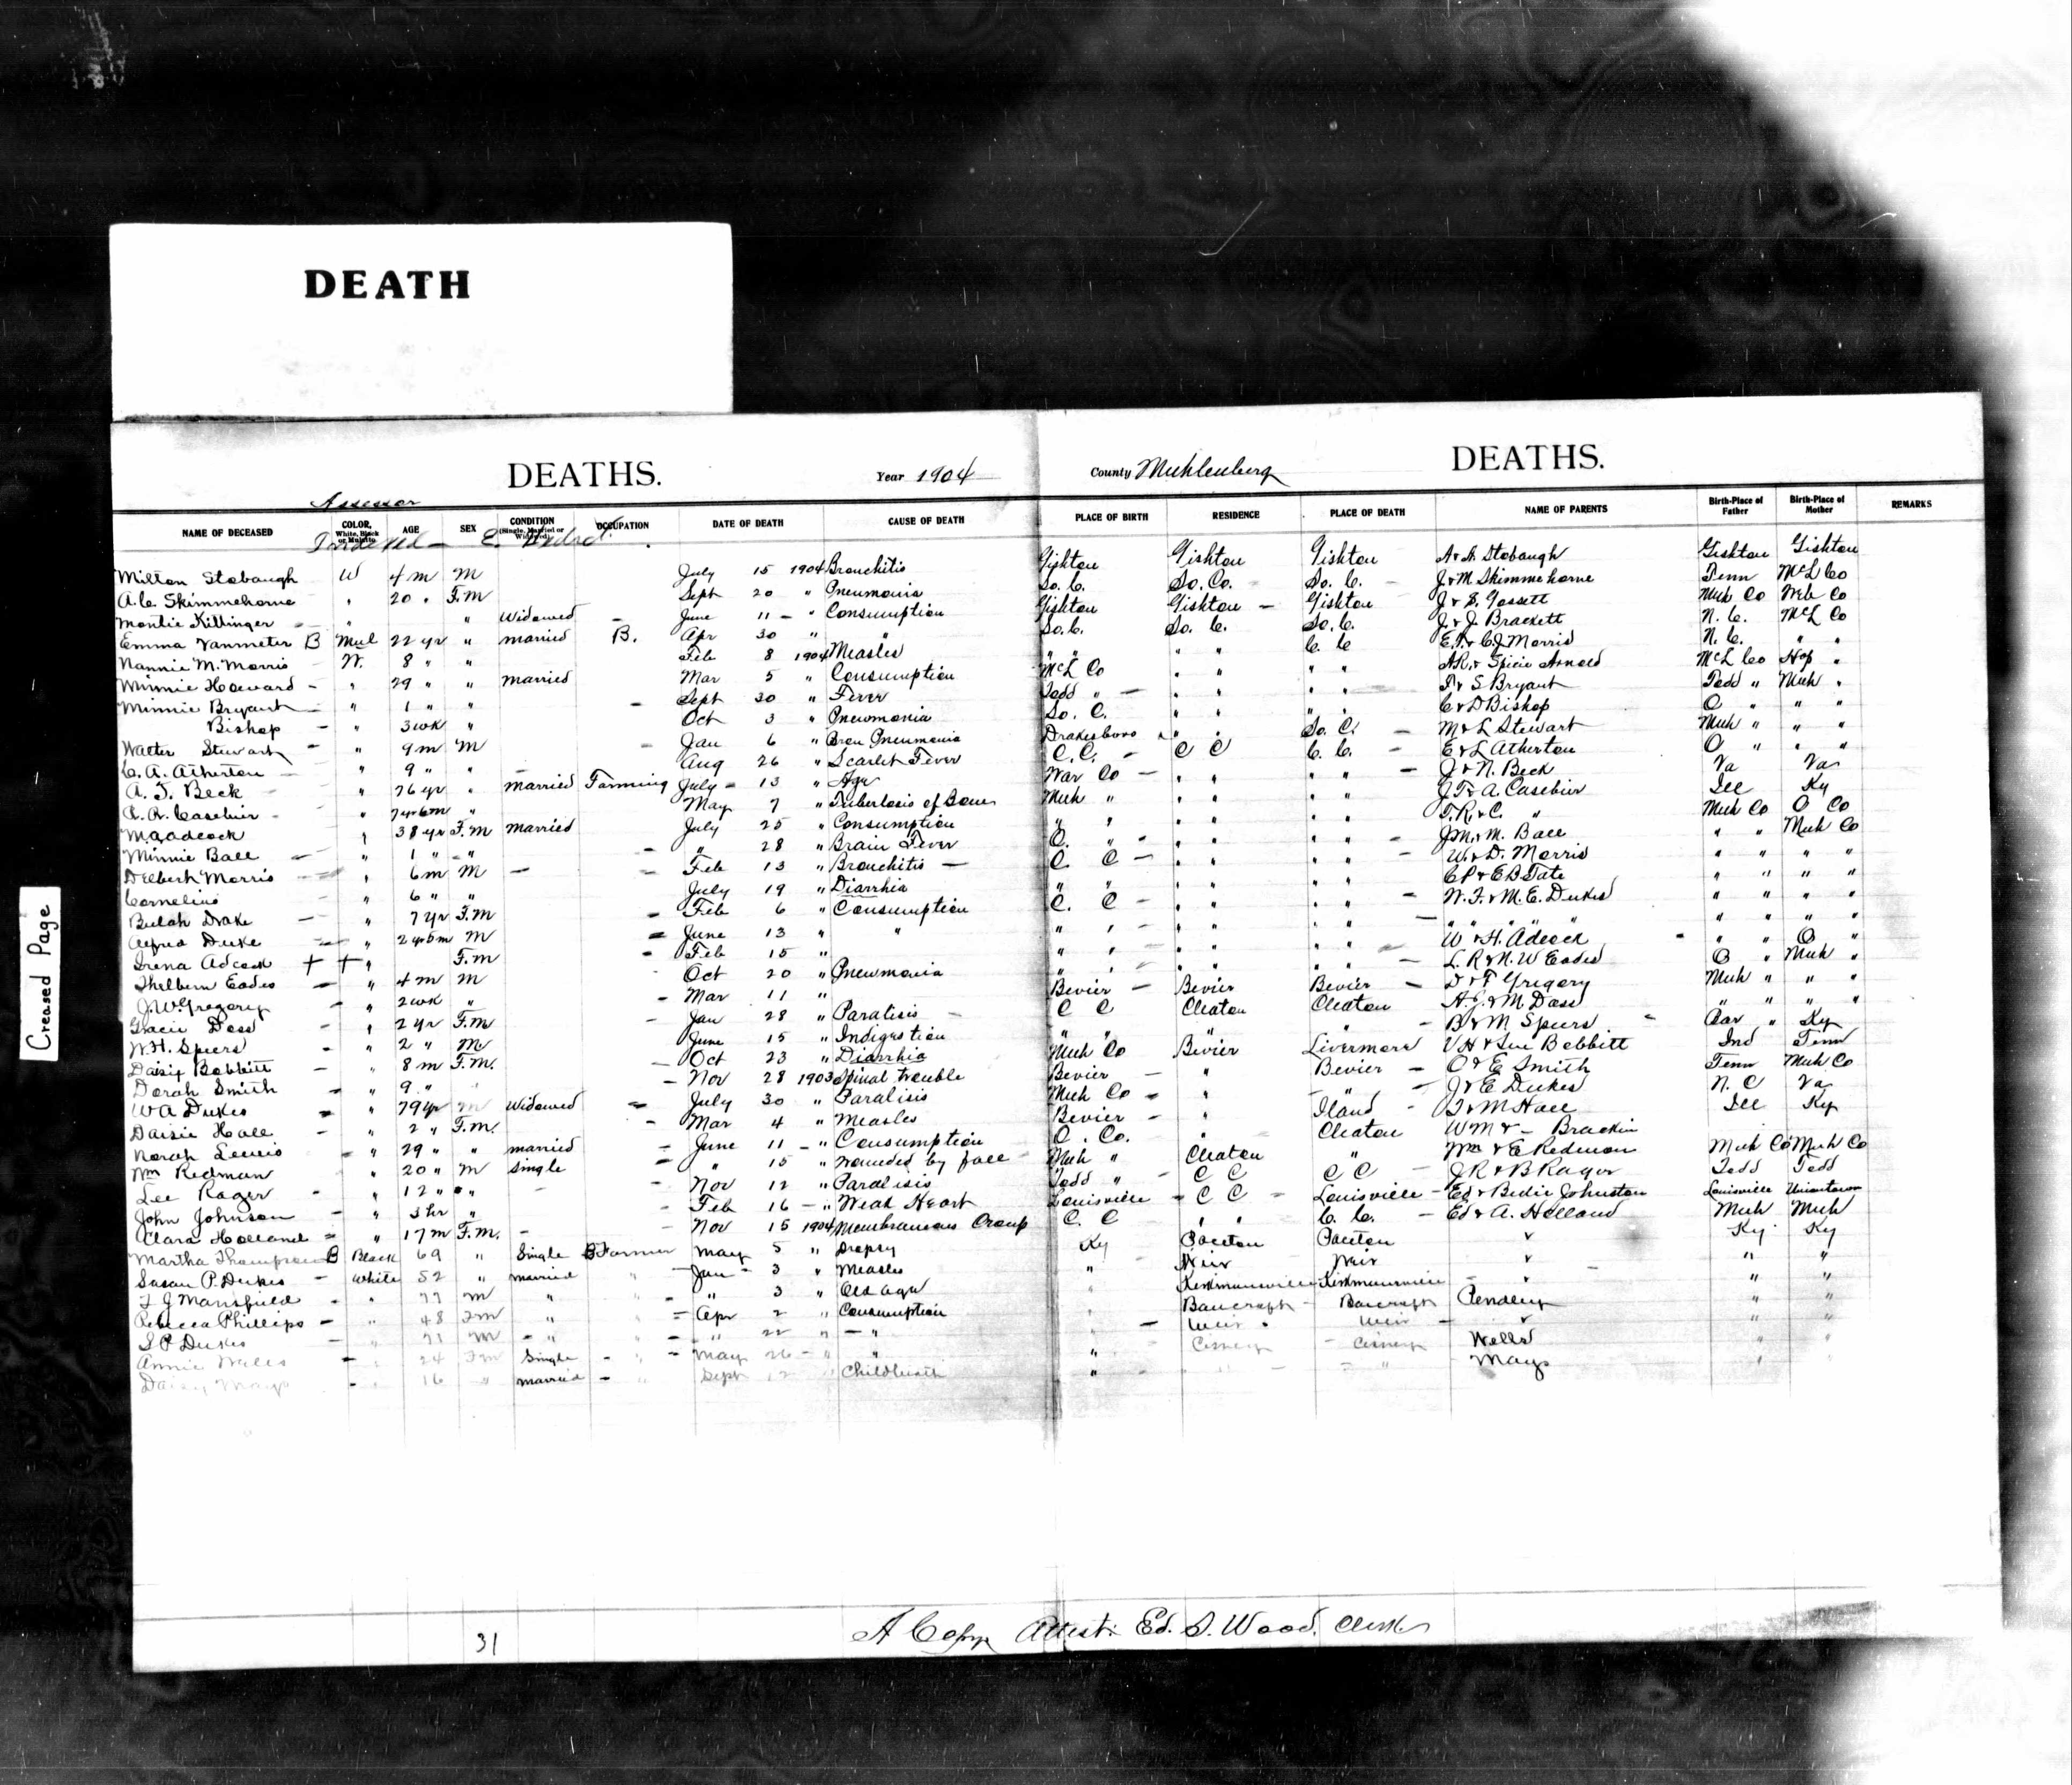 DEATH
DEATHS. Year 1904 County Muhlenberg DEATHS.
Assessor
NAME OF DECEASED COLOR, White, Black or Mulatto AGE SEX CONDITION (Single, Married or Widowed) OCCUPATION DATE OF DEATH CAUSE OF DEATH PLACE OF BIRTH RESIDENCE PLACE OF DEATH NAME OF PARENTS Birth-Place of Father Birth-Place of Mother REMARKS
Milton Stobaugh W 4 m M July 15 1904 Bronchitis Gishton Gishton Gishton A & A Stobaugh Gishton Gishton
A. C. Skimmehorne " 20 " F.M Sept 20 " Pneumonia So. C. So. Co. So. C. J & M Skimmehorne Tenn McL Co
Montie Killinger " Widowed June 11 " Consumption Gishton Gishton Gishton J & S. Gossett Muh Co Web Co
Emma Vanmeter B Mul 22 yr " married B. Apr 30 " " So. C. So. C. So. C. J & J Brackett N. C. McL Co
Nannie M. Morris W. 8 " " Feb 8 1904 Measles " " " " C. C E. F. & C. J Morris N. C. " "
Winnie Howard " 29 " " married Mar 5 " Consumption McL Co " " " " A R. & Spicie Arnold McL Co Hop "
Minnie Bryant " 1 " " Sept 30 " Fever Todd " " " " " & S Bryant Todd " Muh "
Bishop " 3 wk " Oct 3 " Pneumonia So. C. " " " " C & D Bishop O " " "
Walter Stewart " 9 m M Jan 6 " Bron Pneumonia Drakesboro " " So. C. M & L Stewart Muh " " "
C. A. Atherton " 9 " " Aug 26 " Scarlet Fever C. C. C C C. C. E & L Atherton O " " "
A. T. Beck " 76 yr " married Farming July 13 " Age War Co " " " " J & N. Beck Va Va
R. R. Casebier " 7 yr 6 m " May 7 " Tuberlosis of Bones Muh " " " " " J. F. & A. Casebier Ill Ky
M. Adcock " 38 yr F. M married July 25 " Consumption " " " " " " F. R. & C. " Muh Co O Co
Minnie Ball " 1 " " " 28 " Brain Fever O. " " " " " J. M. & M. Ball " " Muh Co
Delbert Morris " 6 m M Feb 13 " Bronchitis C. C " " " " W. & D. Morris " " " "
Cornelius " 6 " " July 19 " Diarrhia " " " " " " C P. & E B Tate " " " "
Bulah Drake " 7 yr F. M Feb 6 " Consumption C. C " " " " W. F. & M. E. Dukes " " " "
Alfred Duke " 2 yr 5 m M June 13 " " " " " " " " " " " " " " " "
Irena Adcock + + " F. m Feb 15 " " " " " " " W & H. Adcock " " O "
Thelburn Eades " 4 m M Oct 20 " Pneumonia " " " " " " L. R & N. W Eades O " Muh "
J. W. Gregory " 2 wk " Mar 11 " Bevier Bevier Bevier D & F Gregory Muh " " "
Gracie Doss " 2 yr F. M Jan 28 " Paralisis C C Cleaton Cleaton A. J. & M. Doss " " " "
W. H. Spiers " 2 " M June 15 " Indigestion " " " " B & M Spiers " Ky
Daisy Bobbitt " 8 m F. M. Oct 23 " Diarrhia Muh Co Bevier Livermore V H & Sue Bobbitt Ind Tenn
Dorah Smith " 9 " " Nov 28 1903 Spinal trouble Bevier " Bevier O & E Smith Tenn Muh Co
W A Dukes " 79 yr m Widowed July 30 " Paralisis Muh Co " " J & E Dukes N. C Va
Daisie Hall " 2 " F. M. Mar 4 " Measles Bevier " Iland & M Hall Ill Ky
Norah Lewis " 29 " " married June 11 " Consumption O. Co. " Cleaton W M & - Brackin
Wm Redman " 20 " M single " 15 " Wounded by fall Muh " Cleaton " Wm & E Redmon Muh Co Muh Co
Lee Rager " 12 " " Nov 12 " Paralisis Todd " C C C C J R & B Rager Todd Todd
John Johnson " 3 hr " Feb 16 " Weak Heart Louisville C C Louisville Ed & Bedie Johnston Louisville Uniontown
Clara Holland " 17 m F. M. Nov 15 1904 Membraneous Croup C. C " " C. C. Ed & A. Holland Muh Muh
Martha Thompson B Black 69 " Single Farmer May 5 " Dropsy Ky Ky Ky
Susan P. Dukes White 52 " married " Jan 3 " Measles " Weir Weir " "
Mansfield " 77 M " " " 3 " Old age " "
Rebecca Phillips " 48 F M " " Apr 2 " Consumption Bancroft Bancroft " "
S P Dukes " 71 M " " " 22 " " Weir Weir " "
Annie Wells " 24 F M Single " May 26 " " " Wells " "
Daisy Mays " 16 " married " Sept 12 " Childbirth " " Mays
31 A Copy Attest: Ed. S. Wood, Clerk
Creased Page